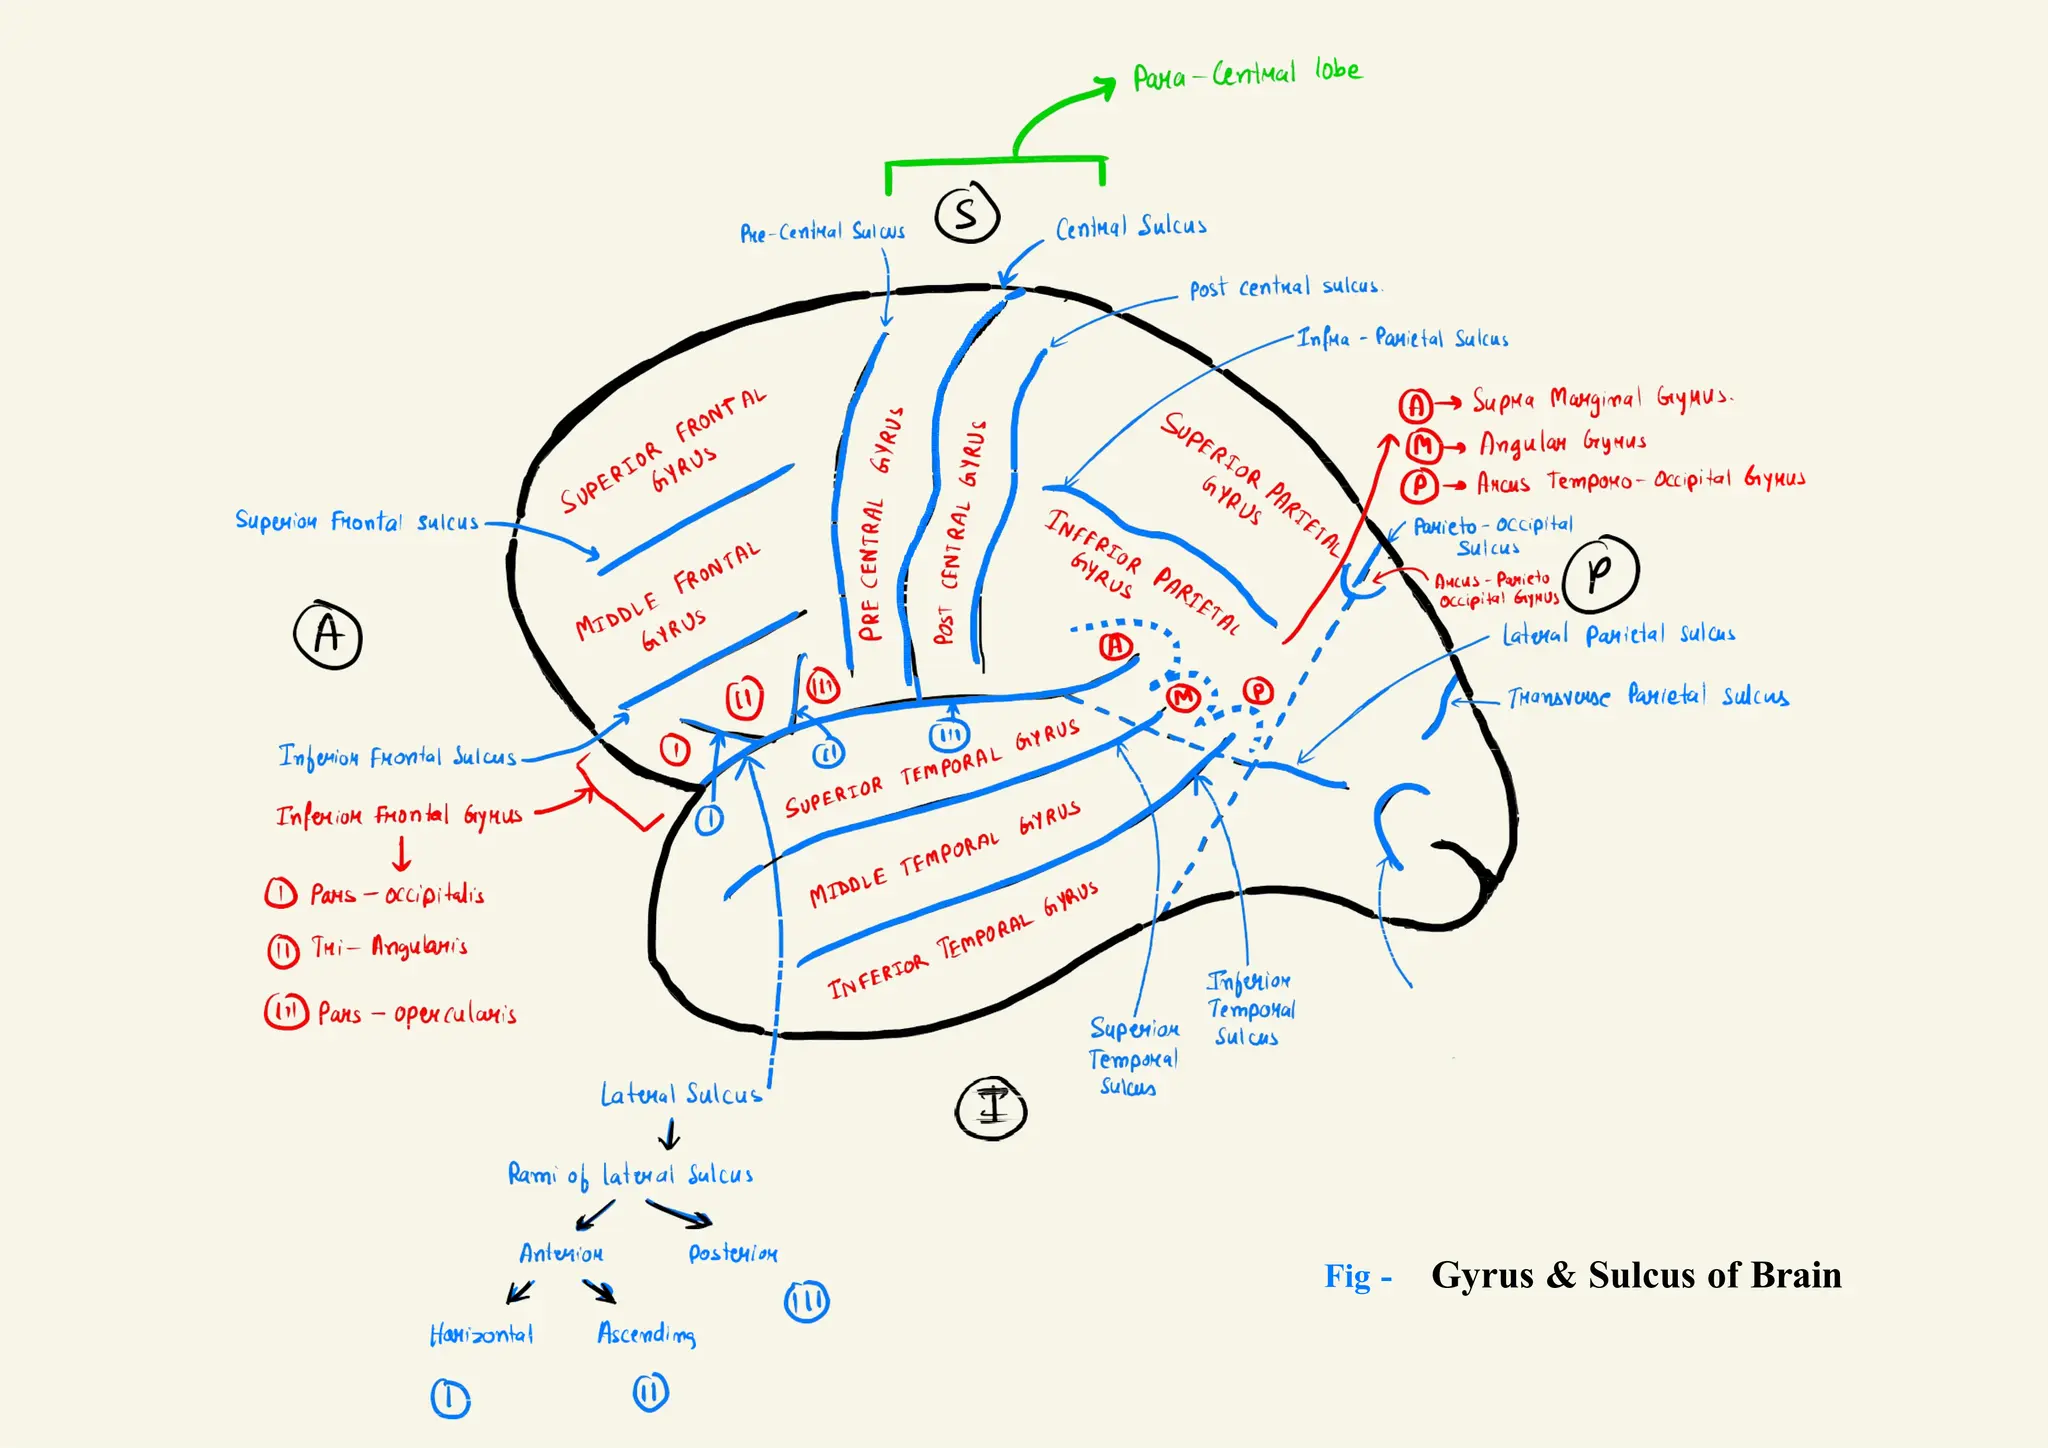 Para-Central lobe
S
Pre-Central Sulcus
Central Sulcus
Post central sulcus.
Infra - Parietal Sulcus
A → Supra Marginal Gyrus.
M → Angular Gyrus
P → Arcus Temporo-Occipital Gyrus
SUPERIOR FRONTAL
GYRUS
MIDDLE FRONTAL
GYRUS
PRE CENTRAL GYRUS
POST CENTRAL GYRUS
SUPERIOR PARIETAL
GYRUS
INFERIOR PARIETAL
GYRUS
Superior Frontal sulcus
Parieto-occipital
Sulcus
P
Arcus-Parieto
Occipital Gyrus
A
Lateral Parietal Sulcus
Transverse Parietal Sulcus
A
M
P
I
II
III
I
II
III
Inferior Frontal Sulcus
Inferior Frontal Gyrus
I Pars-occipitalis
II Tri-Angularis
III Pars-opercularis
SUPERIOR TEMPORAL GYRUS
MIDDLE TEMPORAL GYRUS
INFERIOR TEMPORAL GYRUS
Inferior
Temporal
Sulcus
Superior
Temporal
Sulcus
I
Lateral Sulcus
Rami of lateral Sulcus
Anterior
Posterior
III
Horizontal
Ascending
I
II
Fig - Gyrus & Sulcus of Brain